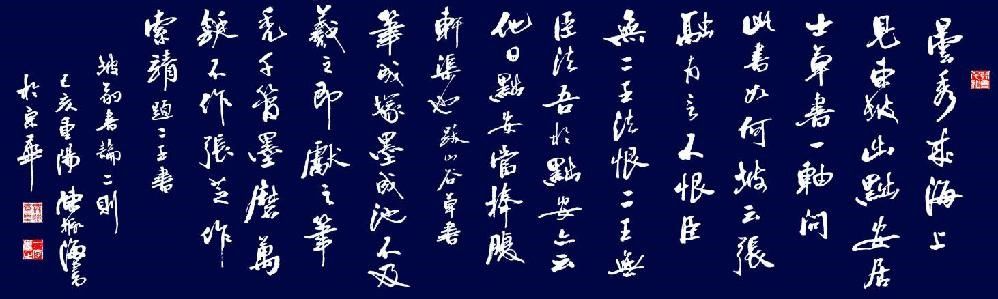 曇秀來海上
見東坡出黔安居
士草書一軸問
此書如何坡云張
融有言不恨臣
無二王法恨二王無
臣法吾於黔安亦云
他日黔安當捧腹
軒渠也 跋山谷草書
筆成塚墨成池不及
羲之即獻之筆
禿千管墨磨萬
鋌不作張芝作
索靖 題二王書
坡翁書論二則
己亥重陽 陳振海書
於京華